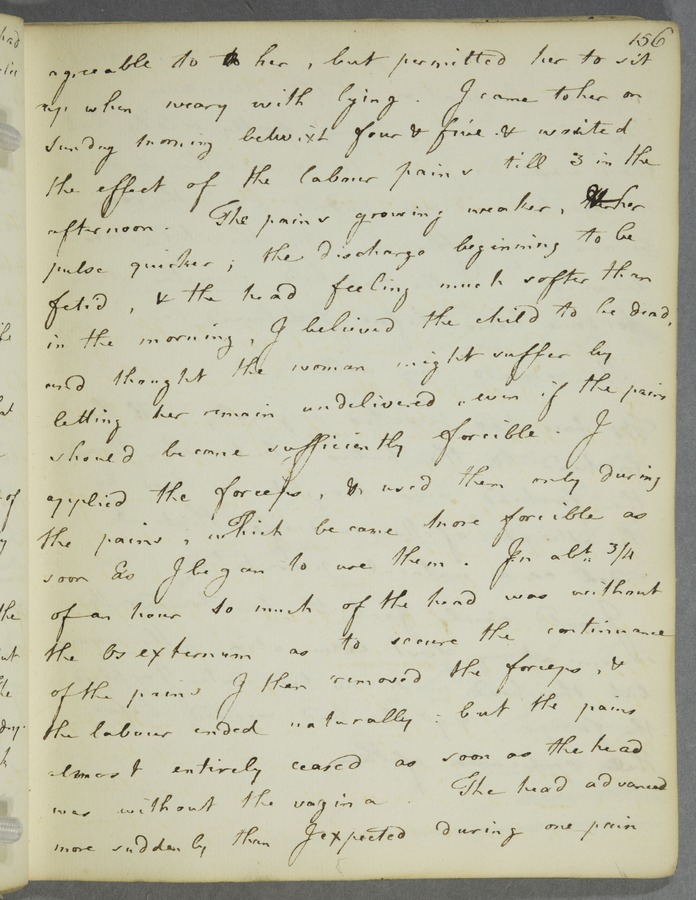 156
agreeable to to her, but permitted her to sit
up when weary with lying. I came to her on
sunday morning betwixt four & five & waited
the effect of the labour pains till 3 in the
afternoon. The pains growing weaker, her
pulse quicker; the discharge beginning to be
fetid, & the head feeling much softer than
in the morning, I believed the child to be dead,
and thought the woman might suffer by
letting her remain undelivered, even if the pains
should become sufficiently forcible. I
applied the forceps, & used them only during
the pains, which became more forcible as
soon as I began to use them. In abt. 3/4
of an hour so much of the head was without
the Os externum as to secure the continuance
of the pains I then removed the forceps, &
the labour ended naturally: but the pains
almost entirely ceased as soon as the head
was without the vagina. The head advanced
more suddenly than I expected during one pain